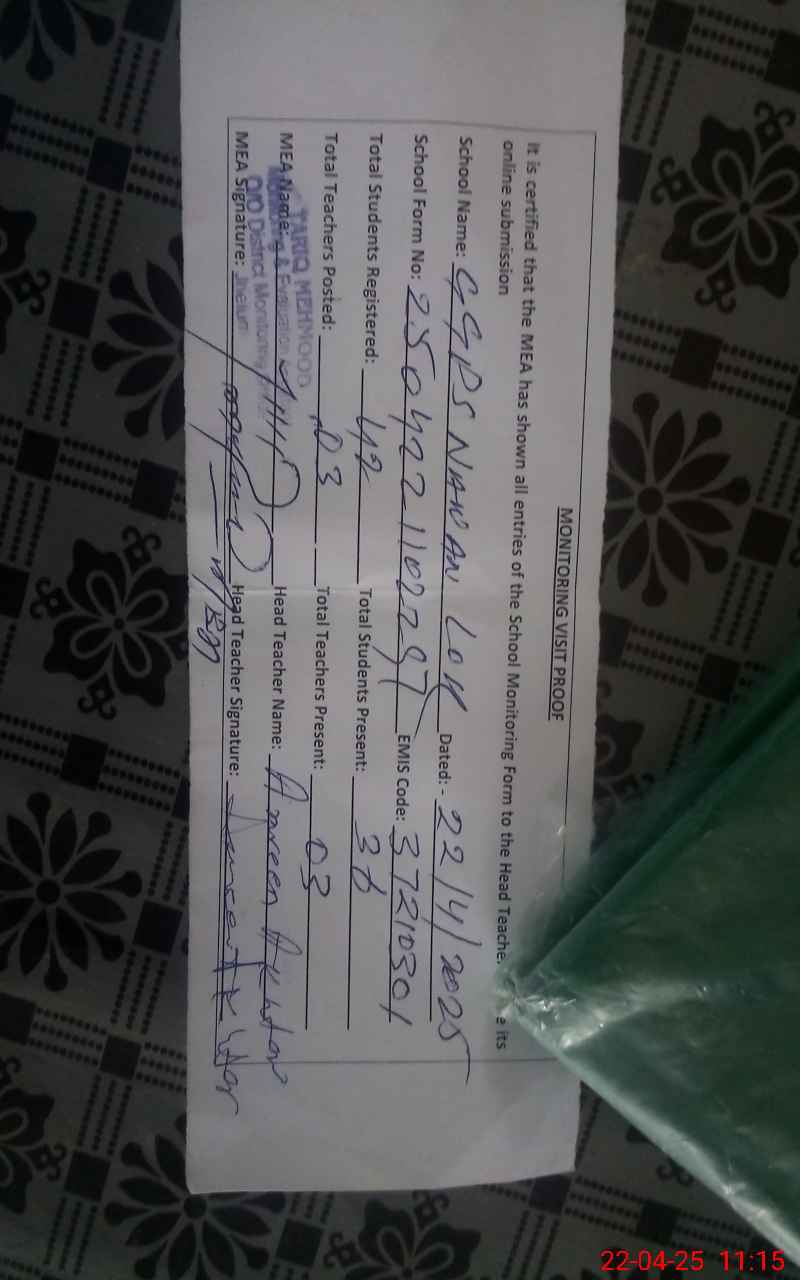 MONITORING VISIT PROOF
It is certified that the MEA has shown all entries of the School Monitoring Form to the Head Teache e its
online submission
School Name: GGPS NAWAN LOK Dated: - 22/4/2025
School Form No: 2504221102797 EMIS Code: 37210301
Total Students Registered: 42 Total Students Present: 36
Total Teachers Posted: 03 Total Teachers Present: 03
MEA Name: Head Teacher Name: Amreen Akhtar
TARIQ MEHMOOD
Monitoring & Evaluation
O/O District Monitoring
Jhelum
MEA Signature: Head Teacher Signature:
22-04-25 11:15